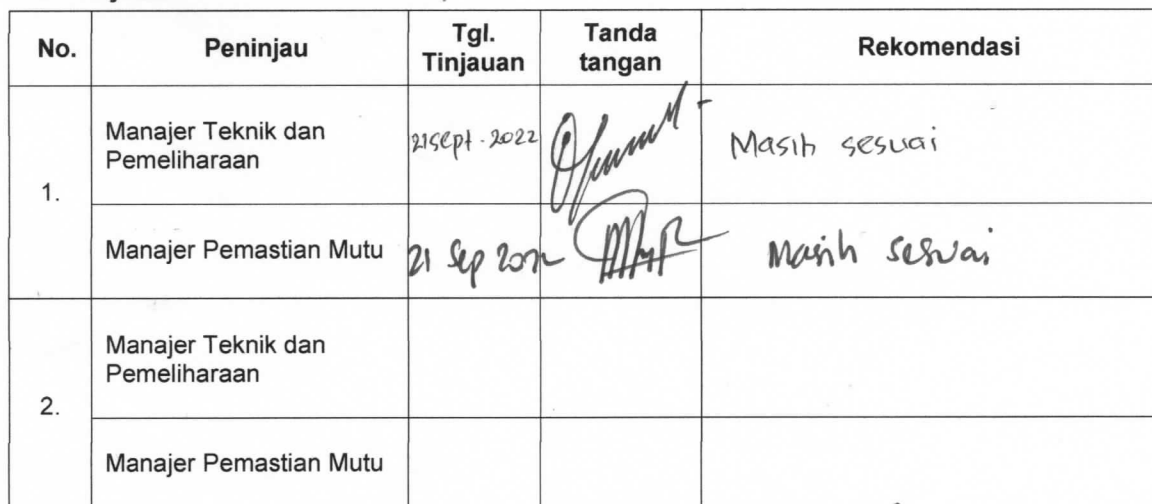 No.
Peninjau
Tgl.
Tinjauan
Tanda
tangan
Rekomendasi
1.
Manajer Teknik dan
Pemeliharaan
21 sept - 2022
Masih sesuai
Manajer Pemastian Mutu
21 Sep 2022
Masih sesuai
2.
Manajer Teknik dan
Pemeliharaan
Manajer Pemastian Mutu